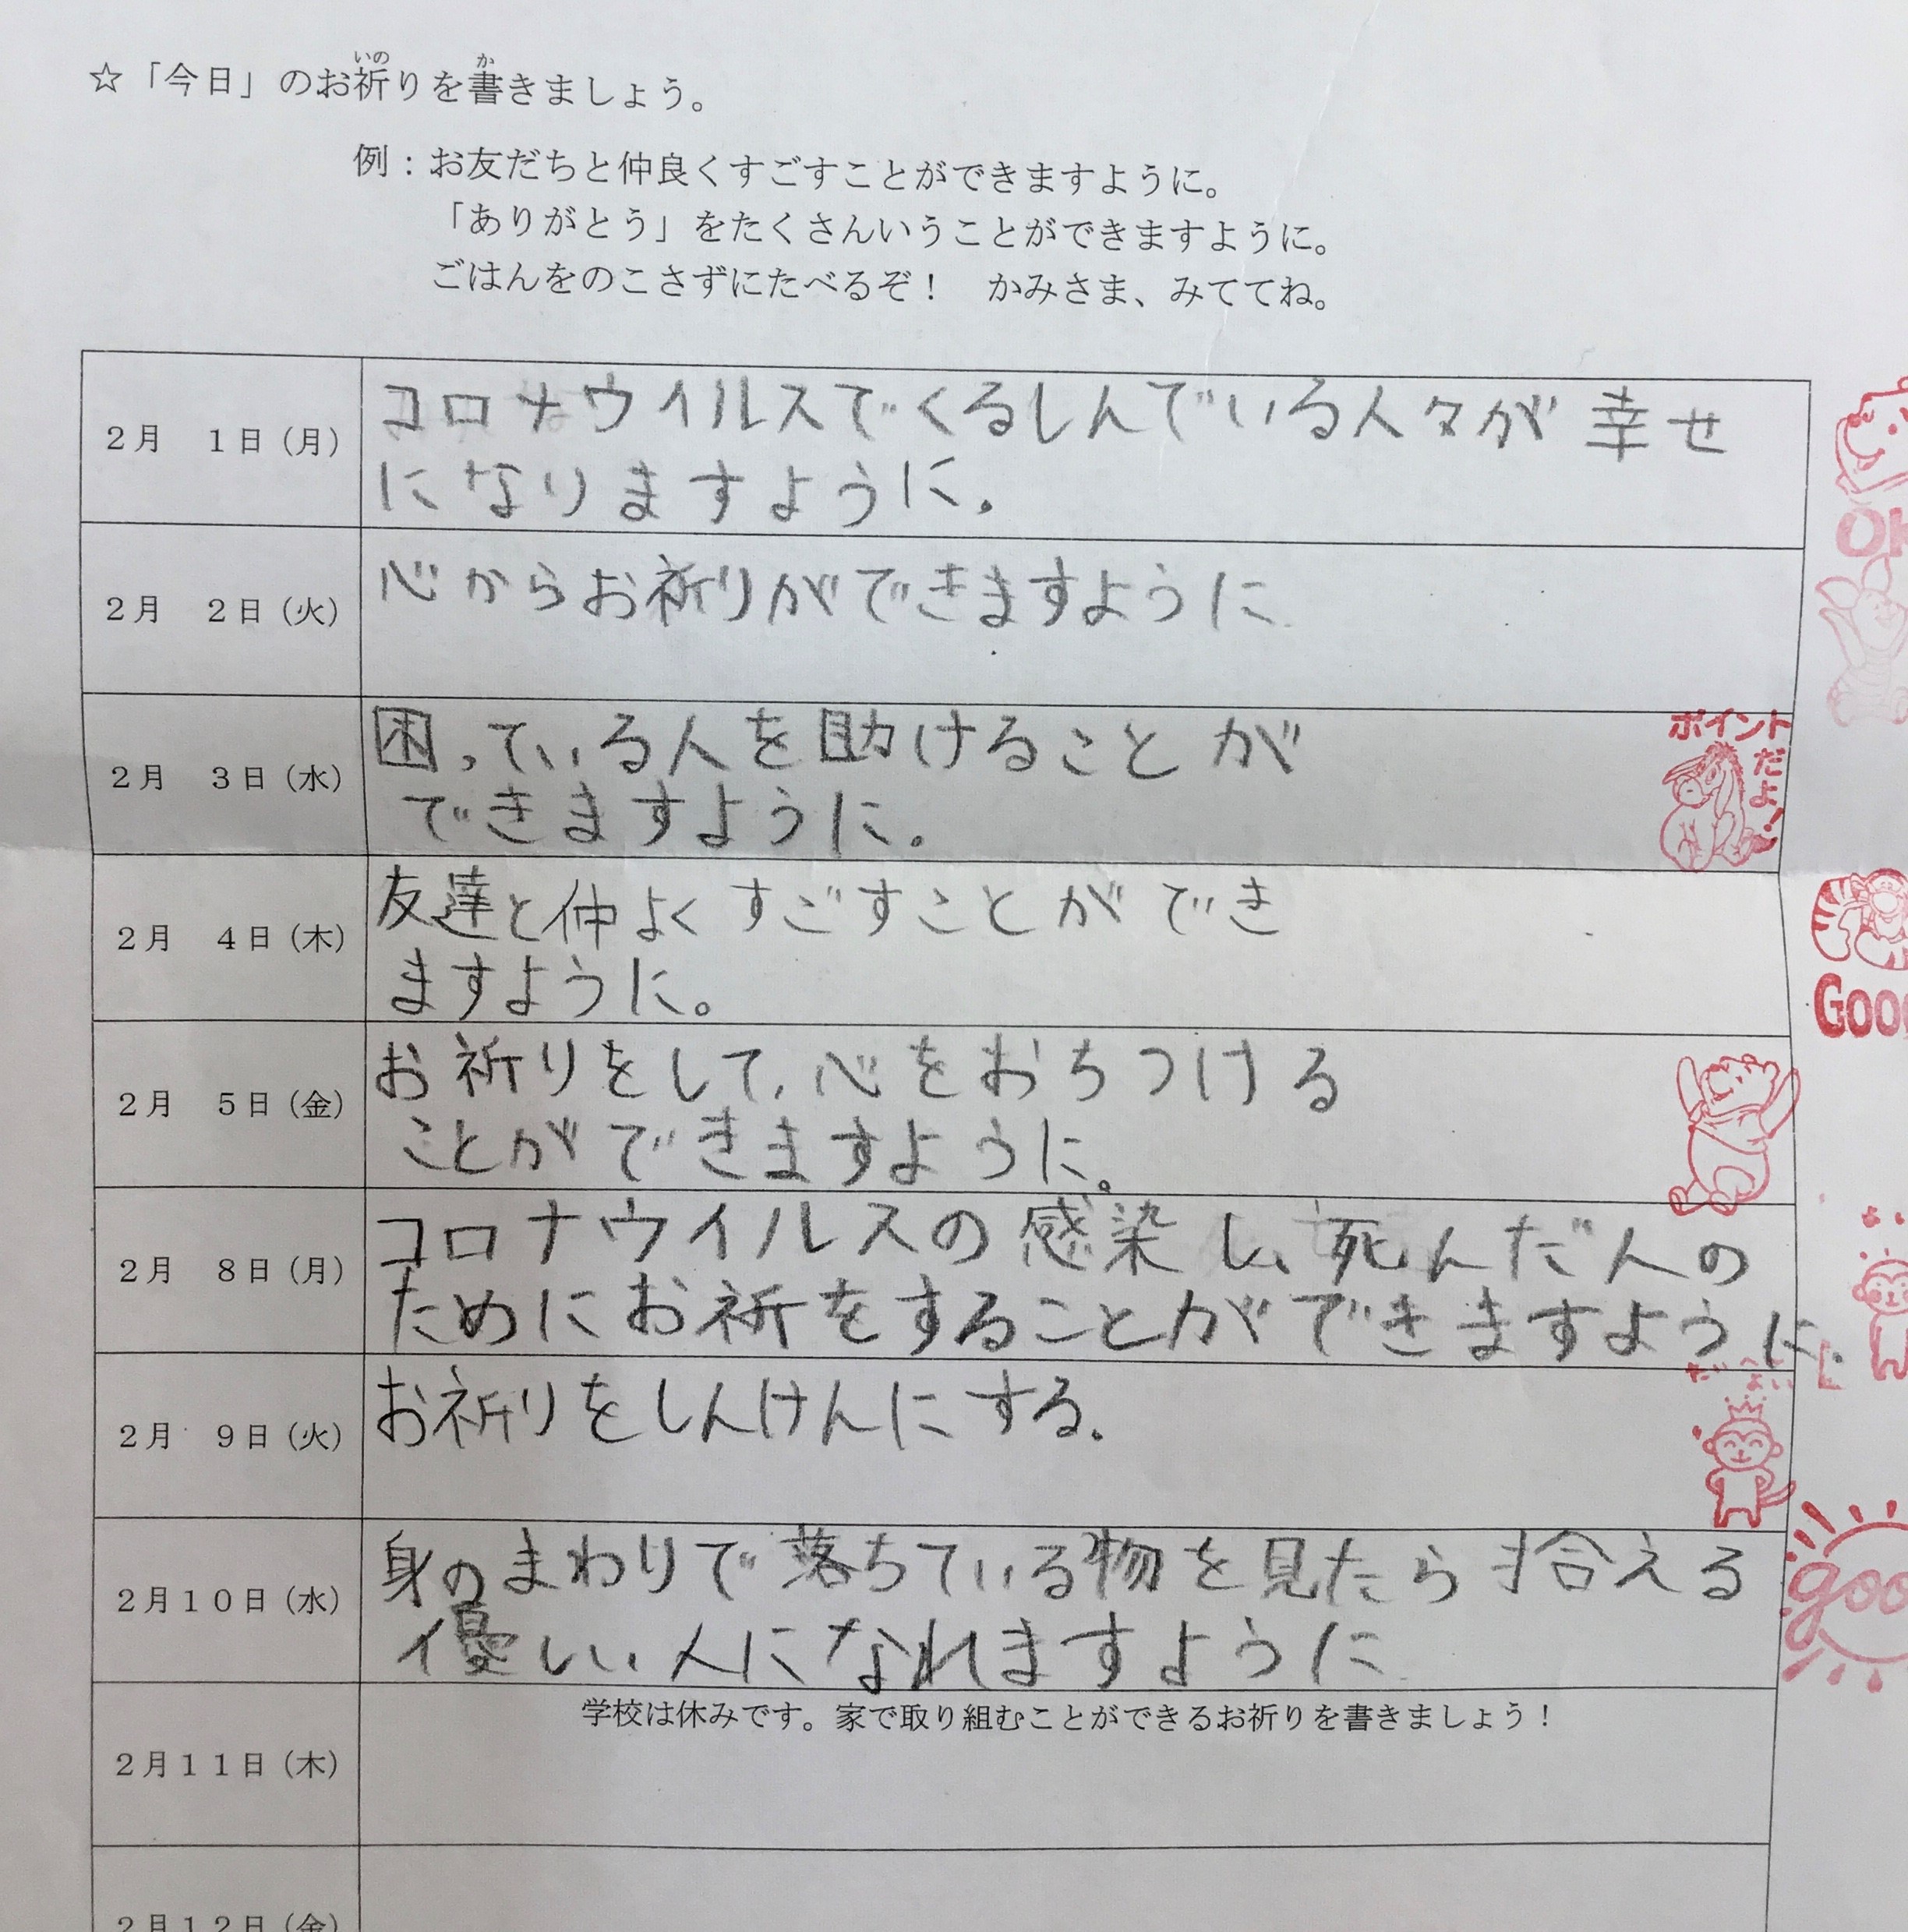 ☆「今日」のお祈りを書きましょう。
いの
か
例：お友だちと仲良くすごすことができますように。
「ありがとう」をたくさんいうことができますように。
ごはんをのこさずにたべるぞ！　かみさま、みててね。
２月　１日（月）
コロナウイルスでくるしんでいる人々が幸せ
になりますように。
OK
２月　２日（火）
心からお祈りができますように
２月　３日（水）
困っている人を助けることが
できますように。
ポイント
だよ！
２月　４日（木）
友達と仲よくすごすことができ
ますように。
Goo
２月　５日（金）
お祈りをして、心をおちつける
ことができますように。
２月　８日（月）
コロナウイルスの感染し、死んだ人の
ためにお祈をすることができますように。
２月　９日（火）
お祈りをしんけんにする。
２月１０日（水）
身のまわりで落ちている物を見たら拾える
優しい人になれますように
goo
２月１１日（木）
学校は休みです。家で取り組むことができるお祈りを書きましょう！
２月１２日（金）